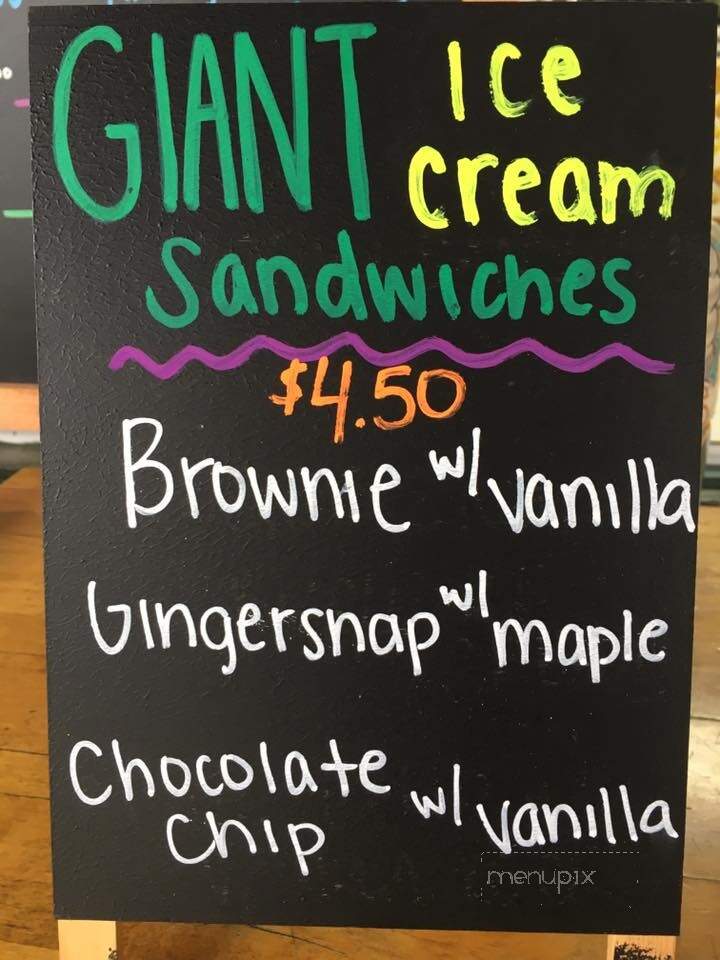 GIANT Ice
cream
Sandwiches
$4.50
Brownie w/ vanilla
Gingersnap w/ maple
Chocolate
Chip w/ vanilla
menupix